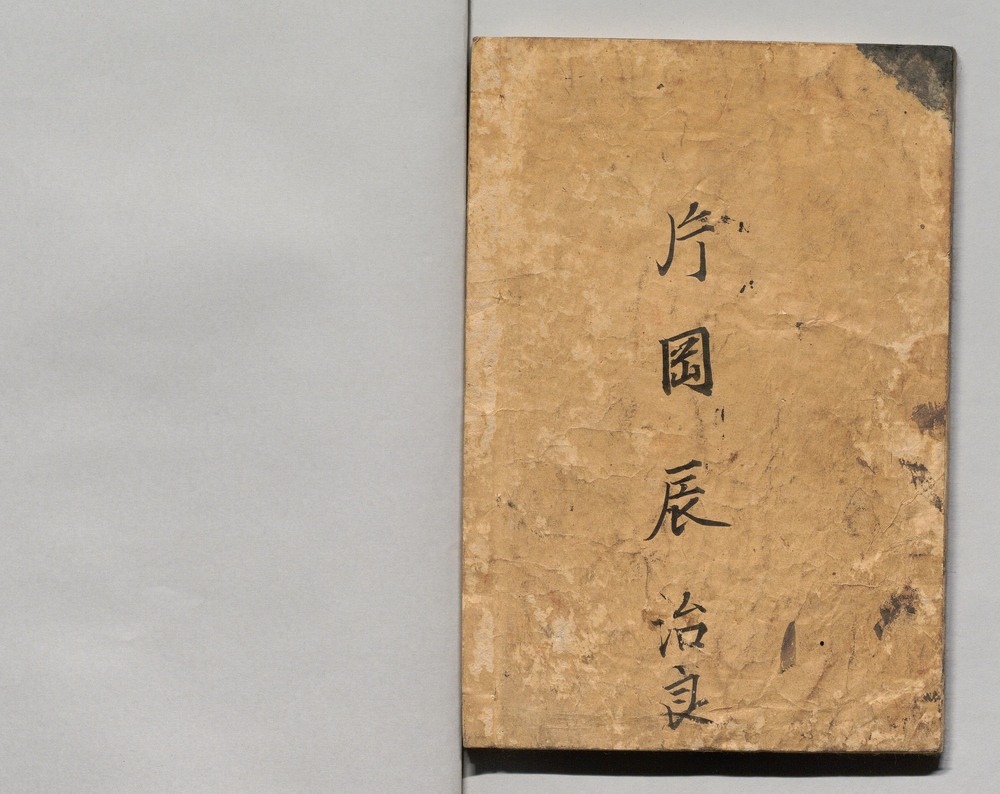 片岡辰治良